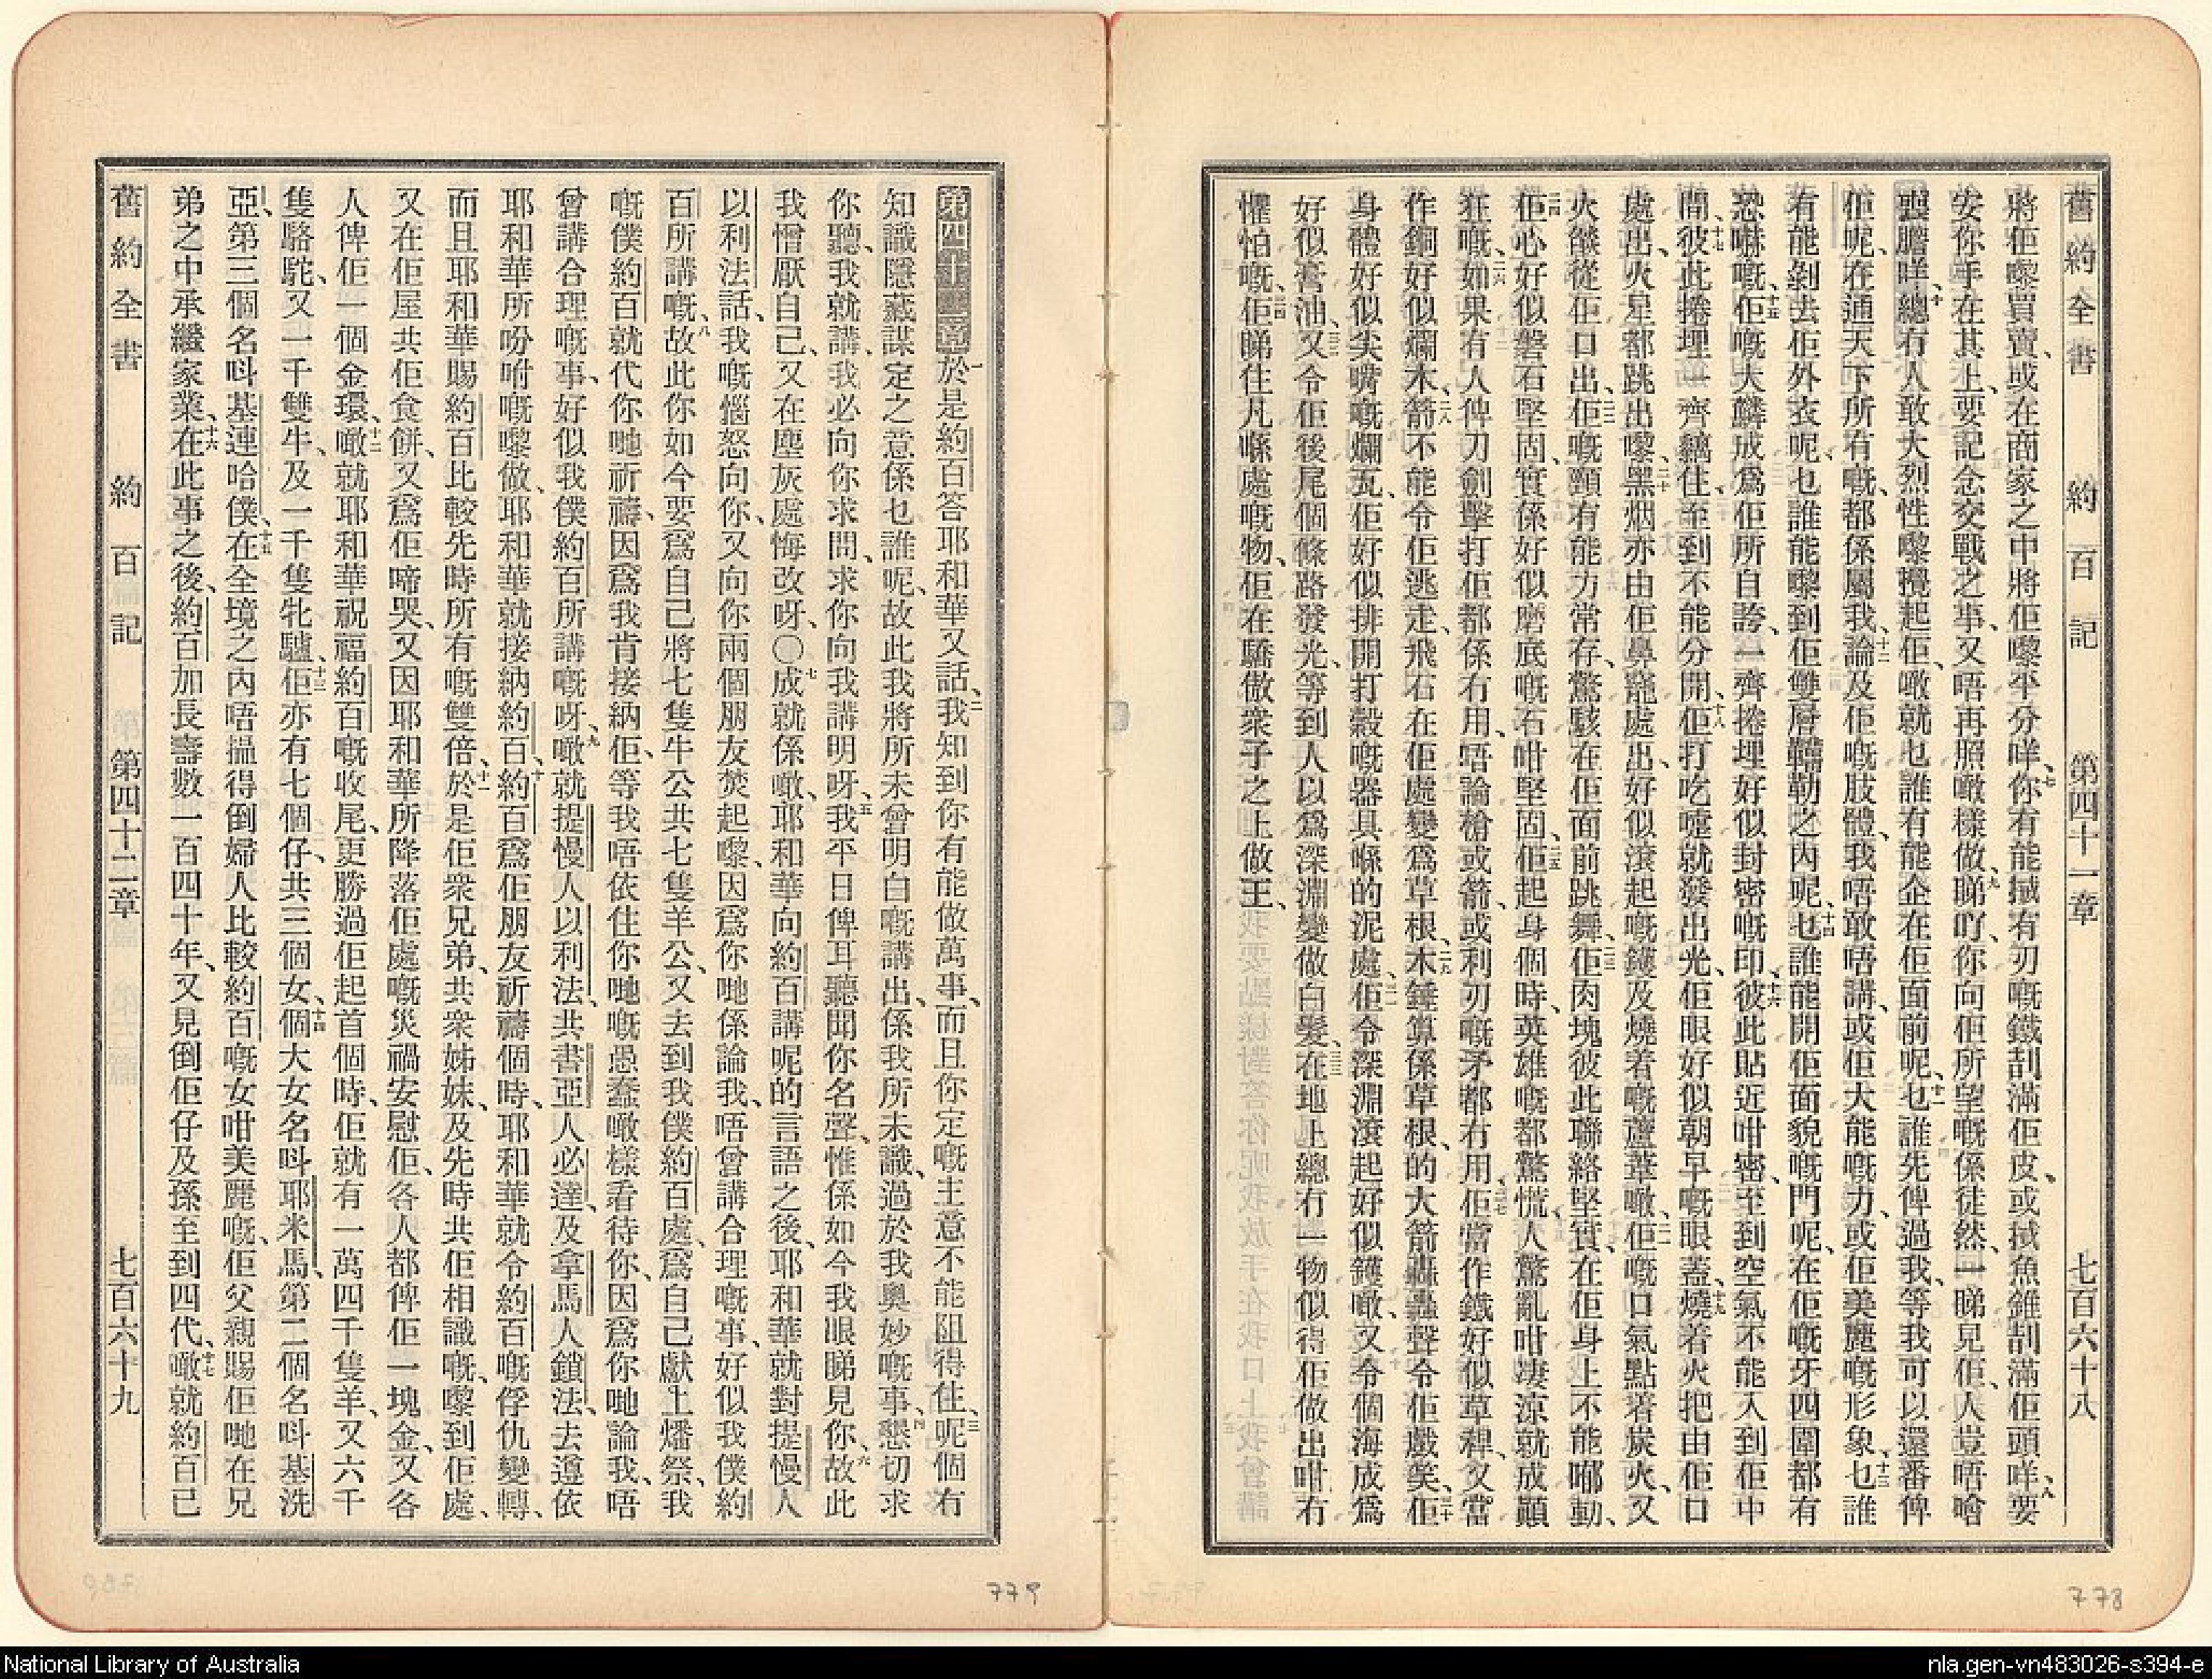 舊約全書 約百記 第四十一章 七百六十八
將佢嚟買賣、或在商家之中將佢嚟平分咩、七你有能搣有刃嘅鐵刮滿佢皮、或拭魚錐刮滿佢頭咩、八要
安你手在其上、要記念交戰之事、又唔再照噉樣做、九睇吖、你向佢所望嘅係徒然、一睇見佢、人豈唔噲
喪膽咩、十總冇人敢大烈性嚟攪起佢、噉就乜誰有能企在佢面前呢、十一乜誰先俾過我、等我可以還番俾
佢呢、在通天下所有嘅、都係屬我、十二論及佢嘅肢體、我唔敢唔講、或佢大能嘅力、或佢美麗嘅形象、十三乜誰
有能剝去佢外衣呢、乜誰能嚟到佢雙層勒之內呢、十四乜誰能開佢面貌嘅門呢、在佢嘅牙四圍都有
恐嚇嘅、十五佢嘅大鱗成爲佢所自誇、一齊捲埋好似封密嘅印、十六彼此貼近咁密、至到空氣不能入到佢中
間、十七彼此捲埋一齊黐住、至到不能分開、十八佢打吃嚏就發出光、佢眼好似朝早嘅眼蓋、十九燒着火把由佢口
處出、火星都跳出嚟、二十黑烟亦由佢鼻窿處出、好似滾起嘅鑊及燒着嘅蘆葦噉、二一佢嘅口氣點着炭火、又
火燄從佢口出、二二佢嘅頸有能力常存、驚駭在佢面前跳舞、二三佢肉塊彼此聯絡堅實、在佢身上不能郰動、
二四佢心好似磐石堅固、實係好似磨底嘅石咁堅固、二五佢起身個時、英雄嘅都驚慌、人驚亂咁凄涼就成顚
狂嘅、二六如果有人俾刀劍擊打佢都係冇用、唔論槍或箭、或利刃嘅矛都冇用、二七佢當作鐵好似草稈、又當
作銅好似爛木、二八箭不能令佢逃走、飛石在佢處變爲草根、二九木錘算係草根、的大箭轟轟聲令佢戲笑、三十佢
身體好似尖嘴嘅爛瓦、佢好似排開打穀嘅器具喺的泥處、三一佢令深淵滾起好似鑊噉、又令個海成爲
好似膏油、三二又令佢後尾個條路發光、等到人以爲深淵變做白髮、三三在地上總冇一物似得佢、做出咁冇
懼怕嘅、三四佢睇住凡喺處嘅物、佢在驕傲衆子之上做王、
778
第四十二章 一於是約百答耶和華又話、二我知到你有能做萬事、而且你定嘅主意不能阻得住、三呢個冇
知識隱藏謀定之意係乜誰呢、故此我將所未曾明白嘅講出、係我所未識、過於我奧妙嘅事、四懇切求
你聽、我就講、我必向你求問、求你向我講明呀、五我平日俾耳聽聞你名聲、惟係如今我眼睇見你、六故此
我憎厭自己、又在塵灰處悔改呀、〇七成就係噉、耶和華向約百講呢的言語之後、耶和華就對提慢人
以利法話、我嘅惱怒向你、又向你兩個朋友焚起嚟、因爲你哋係論我、唔曾講合理嘅事、好似我僕約
百所講嘅、八故此你如今要爲自己將七隻牛公共七隻羊公、又去到我僕約百處、爲自己獻上燔祭、我
嘅僕約百就代你哋祈禱、因爲我肯接納佢、等我唔依住你哋嘅愚蠢噉樣看待你、因爲你哋論我、唔
曾講合理嘅事、好似我僕約百所講嘅呀、九噉就提慢人以利法、共書亞人必達、及拿馬人鎖法、去遵依
耶和華所吩咐嘅嚟做、耶和華就接納約百、十約百爲佢朋友祈禱個時、耶和華就令約百嘅俘仇變轉、
而且耶和華賜約百比較先時所有嘅雙倍、十一於是佢衆兄弟、共衆姊妹、及先時共佢相識嘅、嚟到佢處、
又在佢屋共佢食餅、又爲佢啼哭、又因耶和華所降落佢處嘅災禍安慰佢、各人都俾佢一塊金、又各
人俾佢一個金環、十二噉就耶和華祝福約百嘅收尾、更勝過佢起首個時、佢就有一萬四千隻羊、又六千
隻駱駝、又一千雙牛、及一千隻牝驢、十三佢亦有七個仔、共三個女、十四個大女名呌耶米馬、第二個名呌基洗
亞、第三個名呌基連哈僕、十五在全境之內唔搵得倒婦人比較約百嘅女咁美麗嘅、佢父親賜佢哋在兄
弟之中承繼家業、十六在此事之後、約百加長壽數一百四十年、又見倒佢仔及孫至到四代、十七噉就約百已
舊約全書 約百記 第四十二章 七百六十九
779
National Library of Australia
nla.gen-vn483026-s394-e